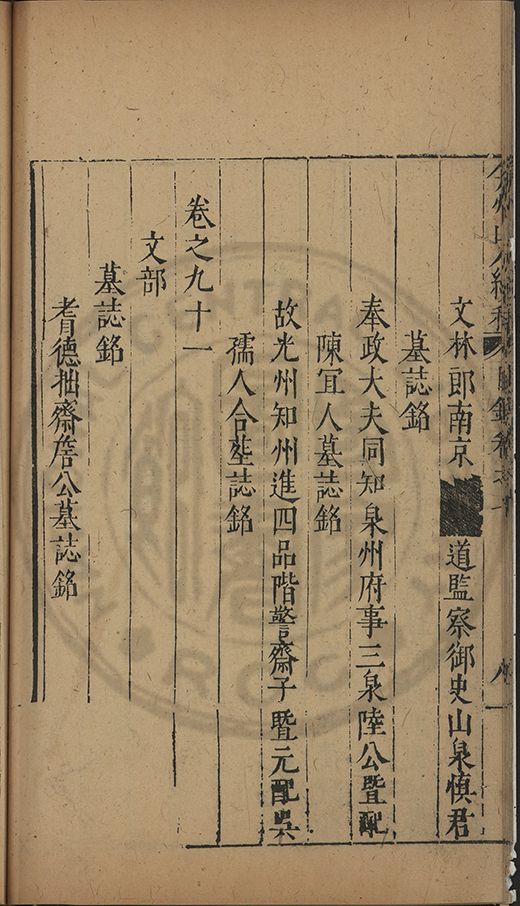 弇州山人續稿 目錄卷之 八
文林郎南京 道監察御史山泉慎君
墓誌銘
奉政大夫同知泉州府事三泉陸公暨配
陳冝人墓誌銘
故光州知州進四品階警齋子暨元配吳
孺人合塟誌銘
卷之九十一
文部
墓誌銘
耆德拙齋詹公墓誌銘